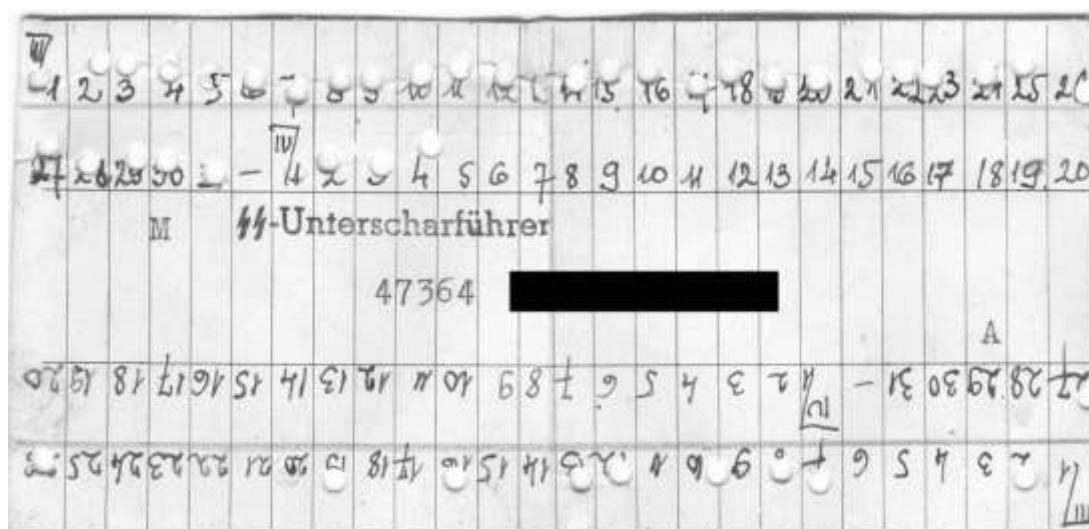 III
1 2 3 4 5 6 7 8 9 10 11 12 14 15 16 18 20 21 22 23 24 25
IV
27 28 29 30 - 1 2 3 4 5 6 7 8 9 10 11 12 13 14 15 16 17 18 19 20
M SS-Unterscharführer
47364
A
20 19 18 17 16 15 14 13 12 11 10 9 8 7 6 5 4 3 2 1 - 31 30 29 28 27
IV
25 24 23 22 21 20 19 18 17 16 15 14 13 12 11 10 9 8 7 6 5 4 3 2 1
III